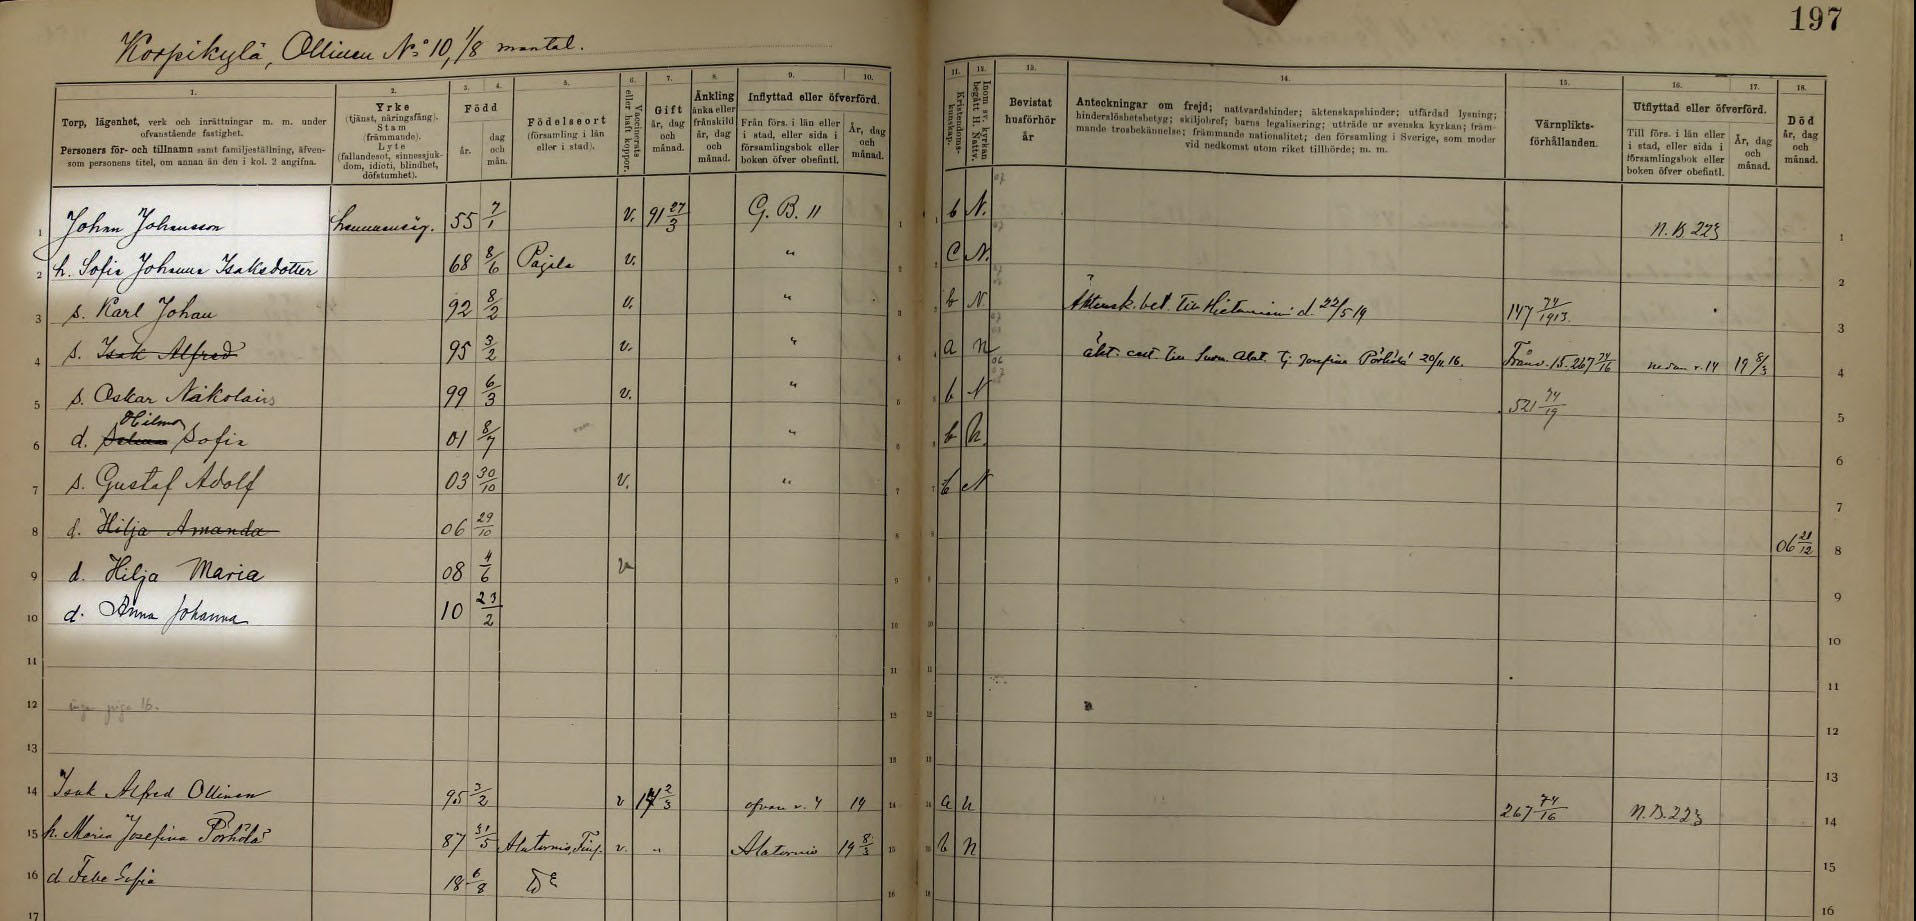 197
Korpikylä, Ollinen No 10, 1/8 mantal.
1. 2. 3. 4. 5. 6. 7. 8. 9. 10.
Torp, lägenhet, verk och inrättningar m. m. under ofvanstående fastighet.
Personers för- och tillnamn samt familjeställning, äfvensom personens titel, om annan än den i kol. 2 angifna.
Yrke (tjänst, näringsfång). Stam (främmande). Lyte (fallandesot, sinnessjukdom, idioti, blindhet, döfstumhet).
Född
år. dag och mån.
Födelseort (församling i län eller i stad).
Vaccinerats eller haft koppor.
Gift år, dag och månad.
Änkling änka eller frånskild år, dag och månad.
Inflyttad eller öfverförd.
Från förs. i län eller i stad, eller sida i församlingsbok eller boken öfver obefintl.
År, dag och månad.
11. 12. 13. 14. 15. 16. 17. 18.
Kristendomskunskap.
Inom sv. kyrkan begått H. Nattv.
Bevistat husförhör år
Anteckningar om frejd; nattvardshinder; äktenskapshinder; utfärdad lysning; hinderslöshetsbetyg; skiljobref; barns legalisering; utträde ur svenska kyrkan; främmande trosbekännelse; främmande nationalitet; den församling i Sverige, som moder vid nedkomst utom riket tillhörde; m. m.
Värnpliktsförhållanden.
Utflyttad eller öfverförd.
Till förs. i län eller i stad, eller sida i församlingsbok eller boken öfver obefintl.
År, dag och månad.
Död år, dag och månad.
1 Johan Johansson 55 7/1 v. 91 27/3 G. B. 11 1 b N. N. B 223 1
2 h. Sofia Johanna Isaksdotter 68 8/6 Pajala v. " 2 C N. 2
3 s. Karl Johan 92 8/2 v. " 3 b N. d. 22/5 19 147 74/1913 3
4 s. Isak Alfred 95 3/2 v. " 4 a n Josefina Pörhölä 20/11 16. 267 74/16 nedan r. 14 19 8/3 4
5 s. Oskar Nikolaus 99 6/3 v. " 5 b N 521 74/19 5
6 d. Hilma Sofia 01 8/7 " 6 b N. 6
7 s. Gustaf Adolf 03 30/10 v. " 7 b N 7
8 d. Hilja Amanda 06 29/10 8 06 21/12 8
9 d. Hilja Maria 08 4/6 v 9 9
10 d. Anna Johanna 10 23/2 10 10
11 11 11
12 12 12
13 13 13
14 Isak Alfred Ollinen 95 3/2 v 2/3 ofvan r. 4 19 14 a n 267 74/16 N. B. 223 14
15 h. Maria Josefina Pörhölä 87 31/5 Alatornio, Finl. v. " Alatornio 19 8/3 15 b n 15
16 d Febe Sofia 18 6/8 16 16
17